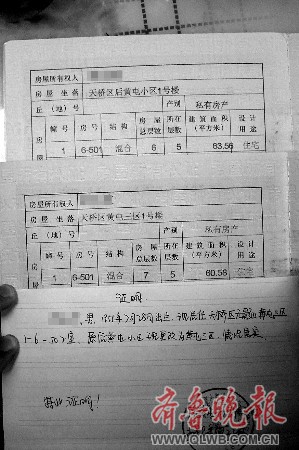 房屋所有权人
房屋坐落 天桥区后黄屯小区1号楼
丘(地)号 产别 私有房产
幢号 房号 结构 房屋总层数 所在层数 建筑面积(平方米) 设计用途
1 6-501 混合 6 5 63.56 住宅
房屋所有权人
房屋坐落 天桥区黄屯三区1号楼
丘(地)号 产别 私有房产
幢号 房号 结构 房屋总层数 所在层数 建筑面积(平方米) 设计用途
1 6-501 混合 7 5 60.58 住宅
证明
男,1951年2月28日出生,现居住天桥区
室,原后黄屯小区现更改为黄屯三区,情况属实。
特此证明!
齐鲁晚报
WWW.QLWB.COM.CN